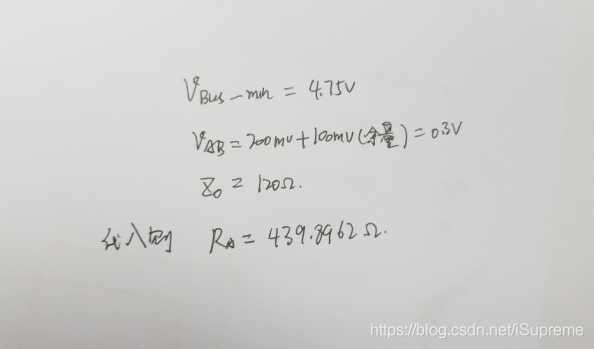 V_Bus-min = 4.75V
V_AB = 200mV + 100mV (余量) = 0.3V
Z_0 = 120Ω.
代入到 R_A = 439.8962Ω.
https://blog.csdn.net/iSupreme